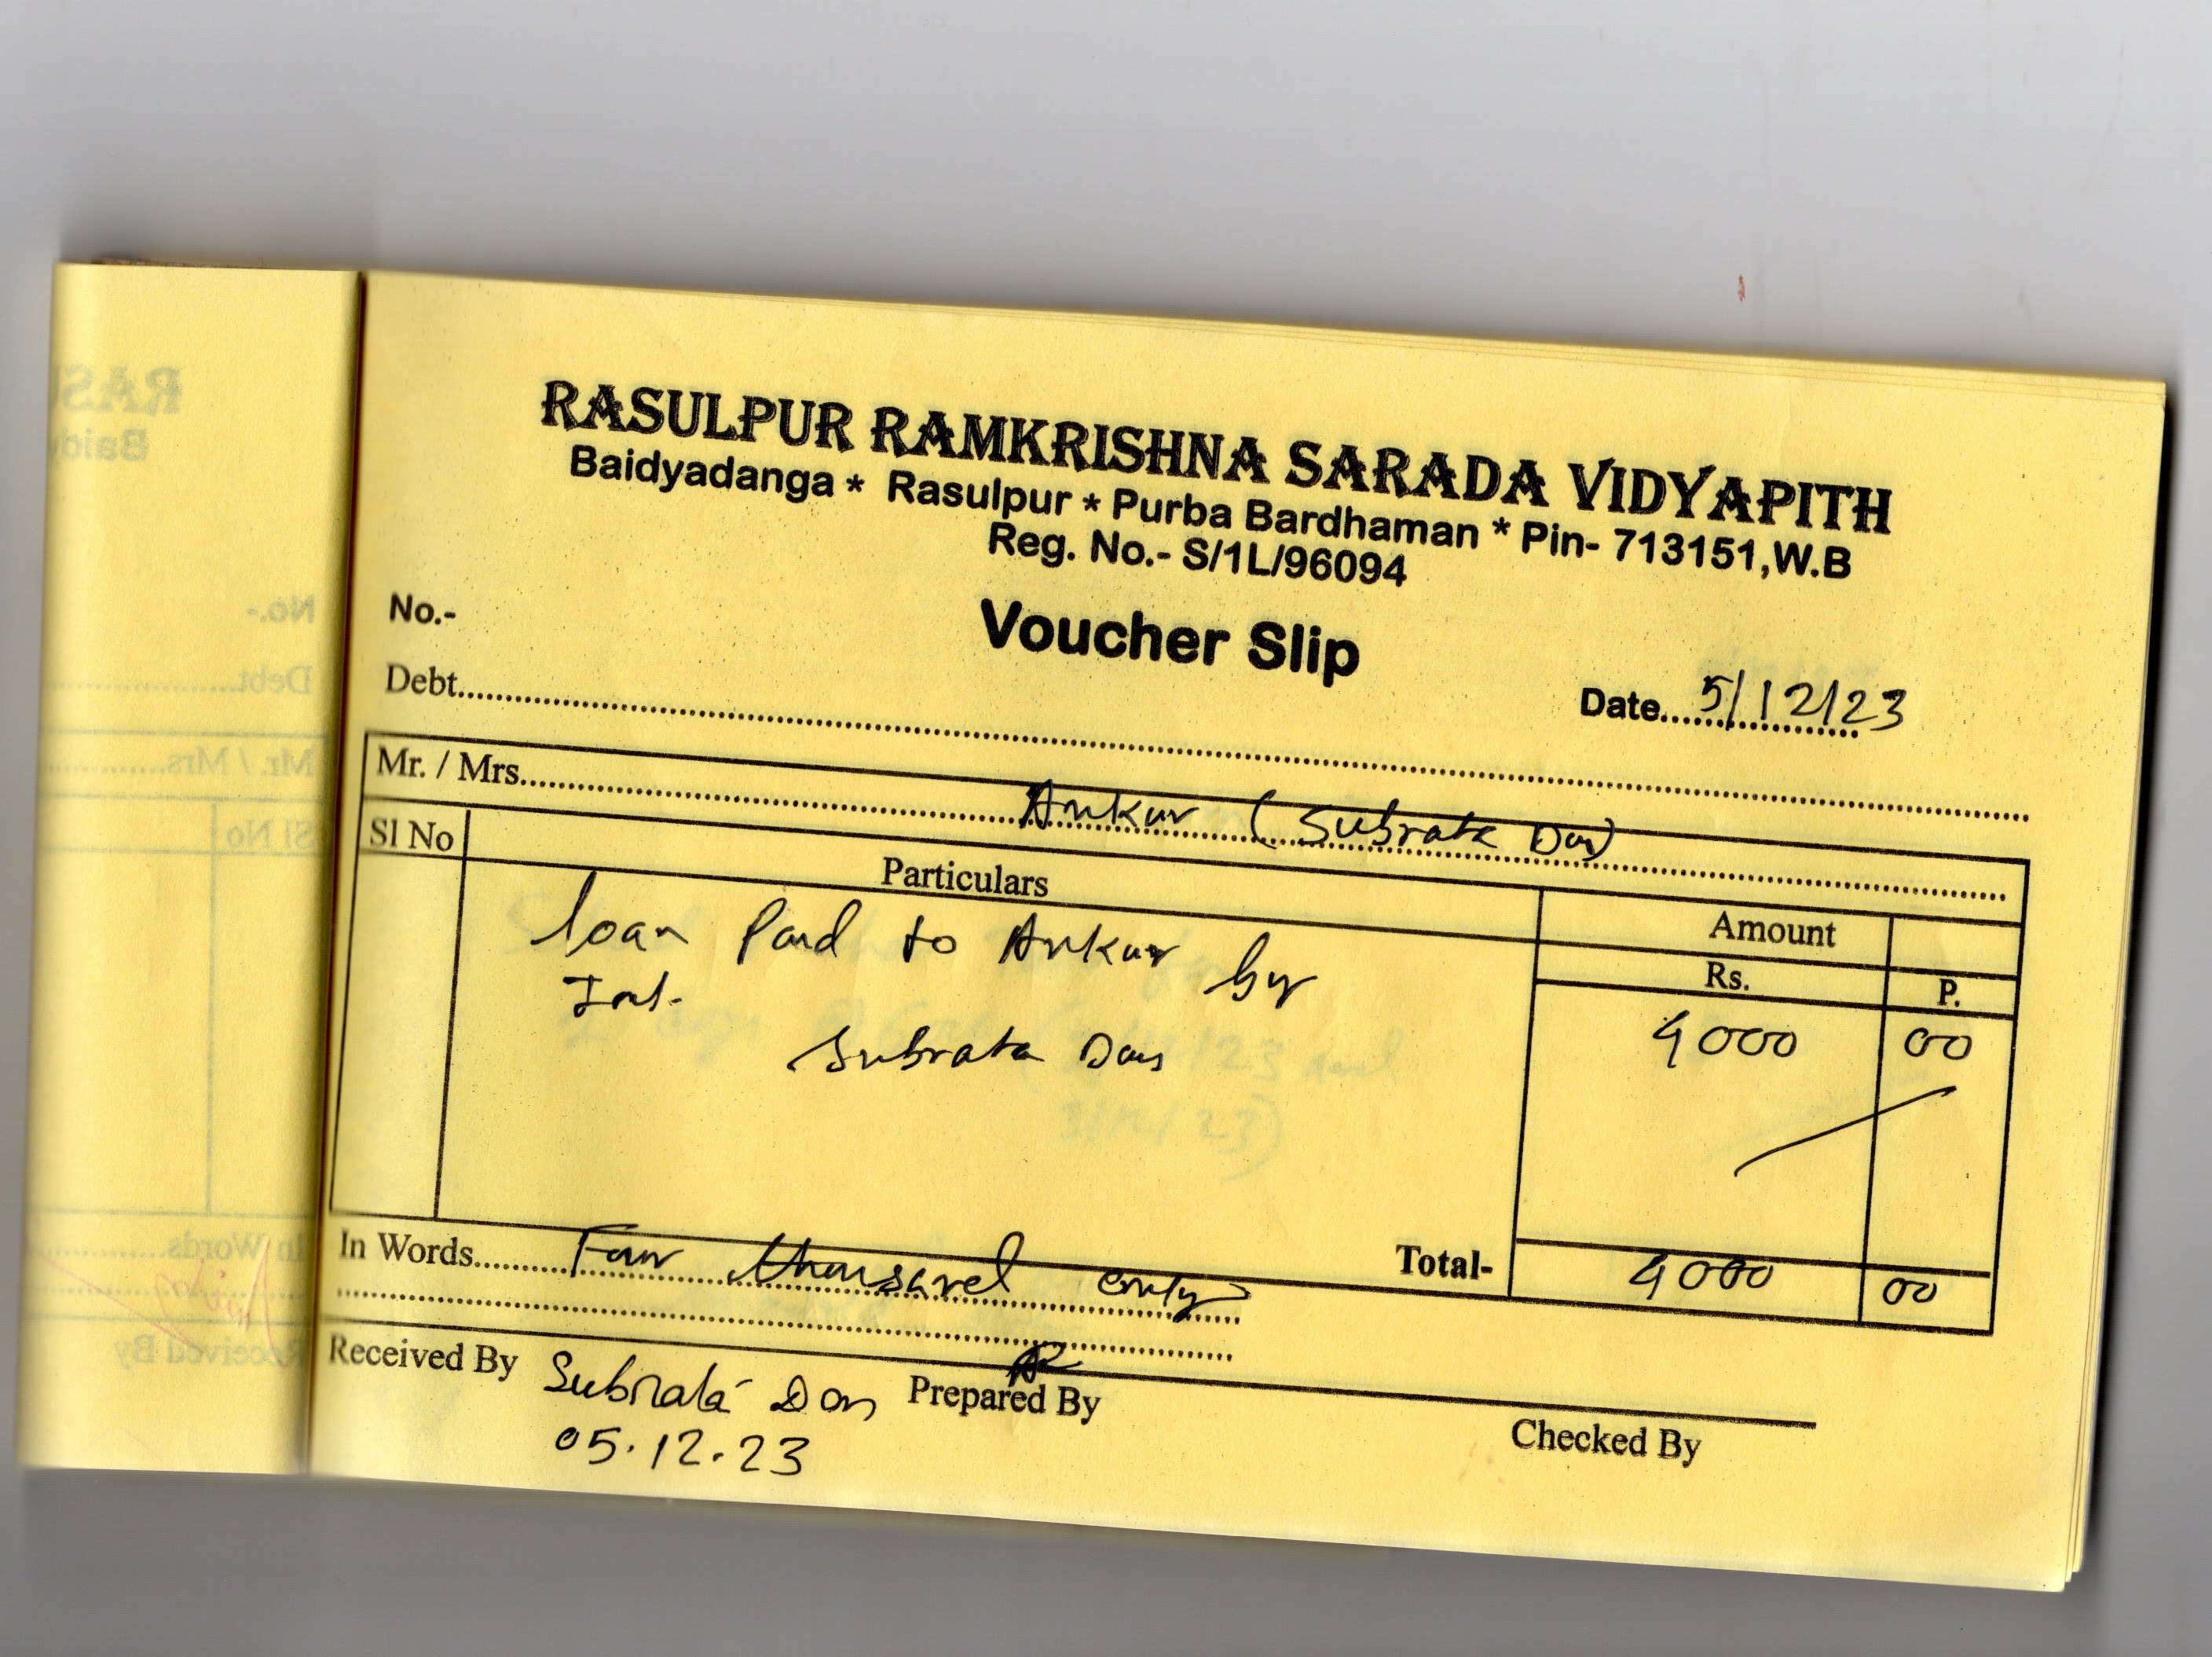 RASULPUR RAMKRISHNA SARADA VIDYAPITH
Baidyadanga * Rasulpur * Purba Bardhaman * Pin- 713151,W.B
Reg. No.- S/1L/96094
No.-
Voucher Slip
Debt
Date 5/12/23
Mr. / Mrs. Ankur (Subrata Das)
Sl No Particulars Amount
Rs. P.
loan Paid to Ankur by 4000 00
Subrata Das
In Words Four thousand only Total- 4000 00
Received By Subrata Das Prepared By Checked By
05.12.23